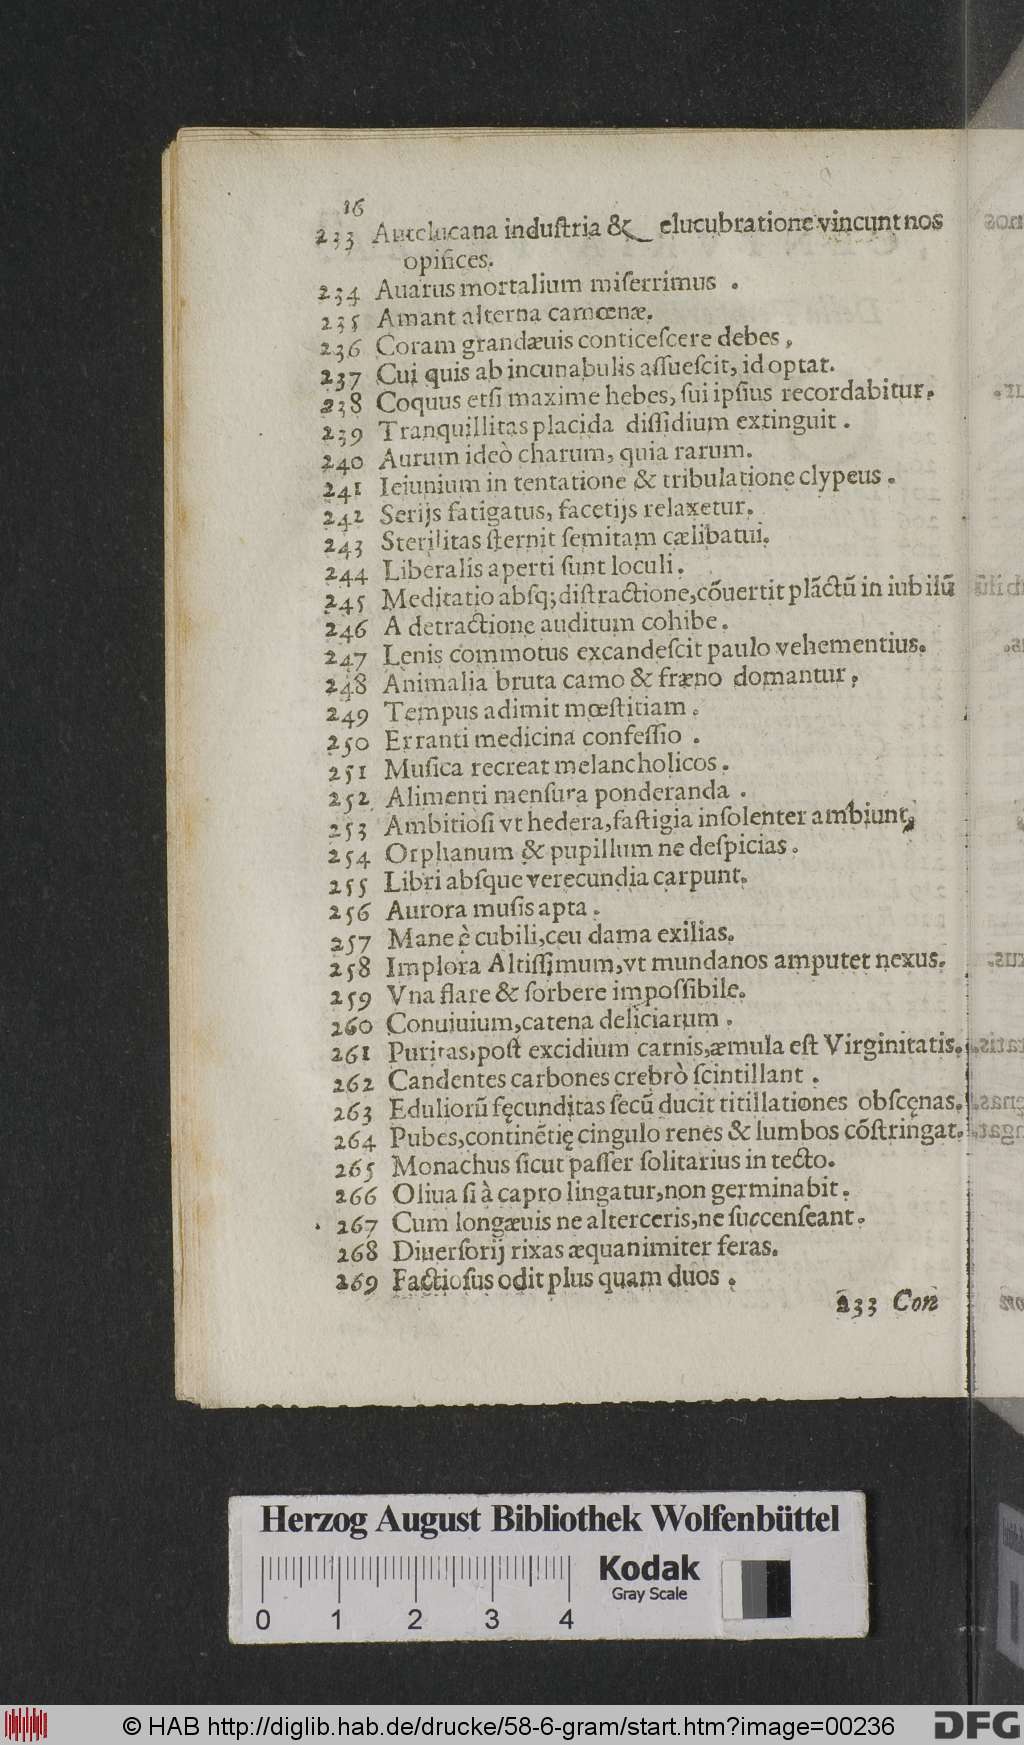 16
233 Antelucana induſtria & elucubratione vincunt nos
opifices.
234 Auarus mortalium miſerrimus .
235 Amant alterna camœnæ.
236 Coram grandæuis conticeſcere debes.
237 Cui quis ab incunabulis aſſueſcit, id optat.
238 Coquus etſi maxime hebes, ſui ipſius recordabitur.
239 Tranquillitas placida diſſidium extinguit .
240 Aurum ideò charum, quia rarum.
241 Ieiunium in tentatione & tribulatione clypeus .
242 Serijs fatigatus, facetijs relaxetur.
243 Sterilitas ſternit ſemitam cælibatui.
244 Liberalis aperti ſunt loculi .
245 Meditatio abſq; diſtractione, cõuertit plãctũ in iubilũ
246 A detractione auditum cohibe .
247 Lenis commotus excandeſcit paulo vehementius.
248 Animalia bruta camo & fræno domantur .
249 Tempus adimit mœſtitiam .
250 Erranti medicina confeſſio .
251 Muſica recreat melancholicos .
252 Alimenti menſura ponderanda .
253 Ambitioſi vt hedera, faſtigia inſolenter ambiunt,
254 Orphanum & pupillum ne deſpicias .
255 Libri abſque verecundia carpunt.
256 Aurora muſis apta .
257 Mane è cubili, ceu dama exilias.
258 Implora Altiſſimum, vt mundanos amputet nexus.
259 Vna flare & ſorbere impoſſibile.
260 Conuiuium, catena deliciarum .
261 Puritas, poſt excidium carnis, æmula eſt Virginitatis.
262 Candentes carbones crebrò ſcintillant .
263 Eduliorũ fęcunditas ſecũ ducit titillationes obſcęnas.
264 Pubes, continẽtię cingulo renes & lumbos cõſtringat.
265 Monachus ſicut paſſer ſolitarius in tecto.
266 Oliua ſi à capro lingatur, non germinabit .
267 Cum longæuis ne alterceris, ne ſuccenſeant .
268 Diuerſorij rixas æquanimiter feras.
269 Factioſus odit plus quam duos .
233 Con
Herzog August Bibliothek Wolfenbüttel
Kodak
Gray Scale
0 1 2 3 4
© HAB http://diglib.hab.de/drucke/58-6-gram/start.htm?image=00236
DFG